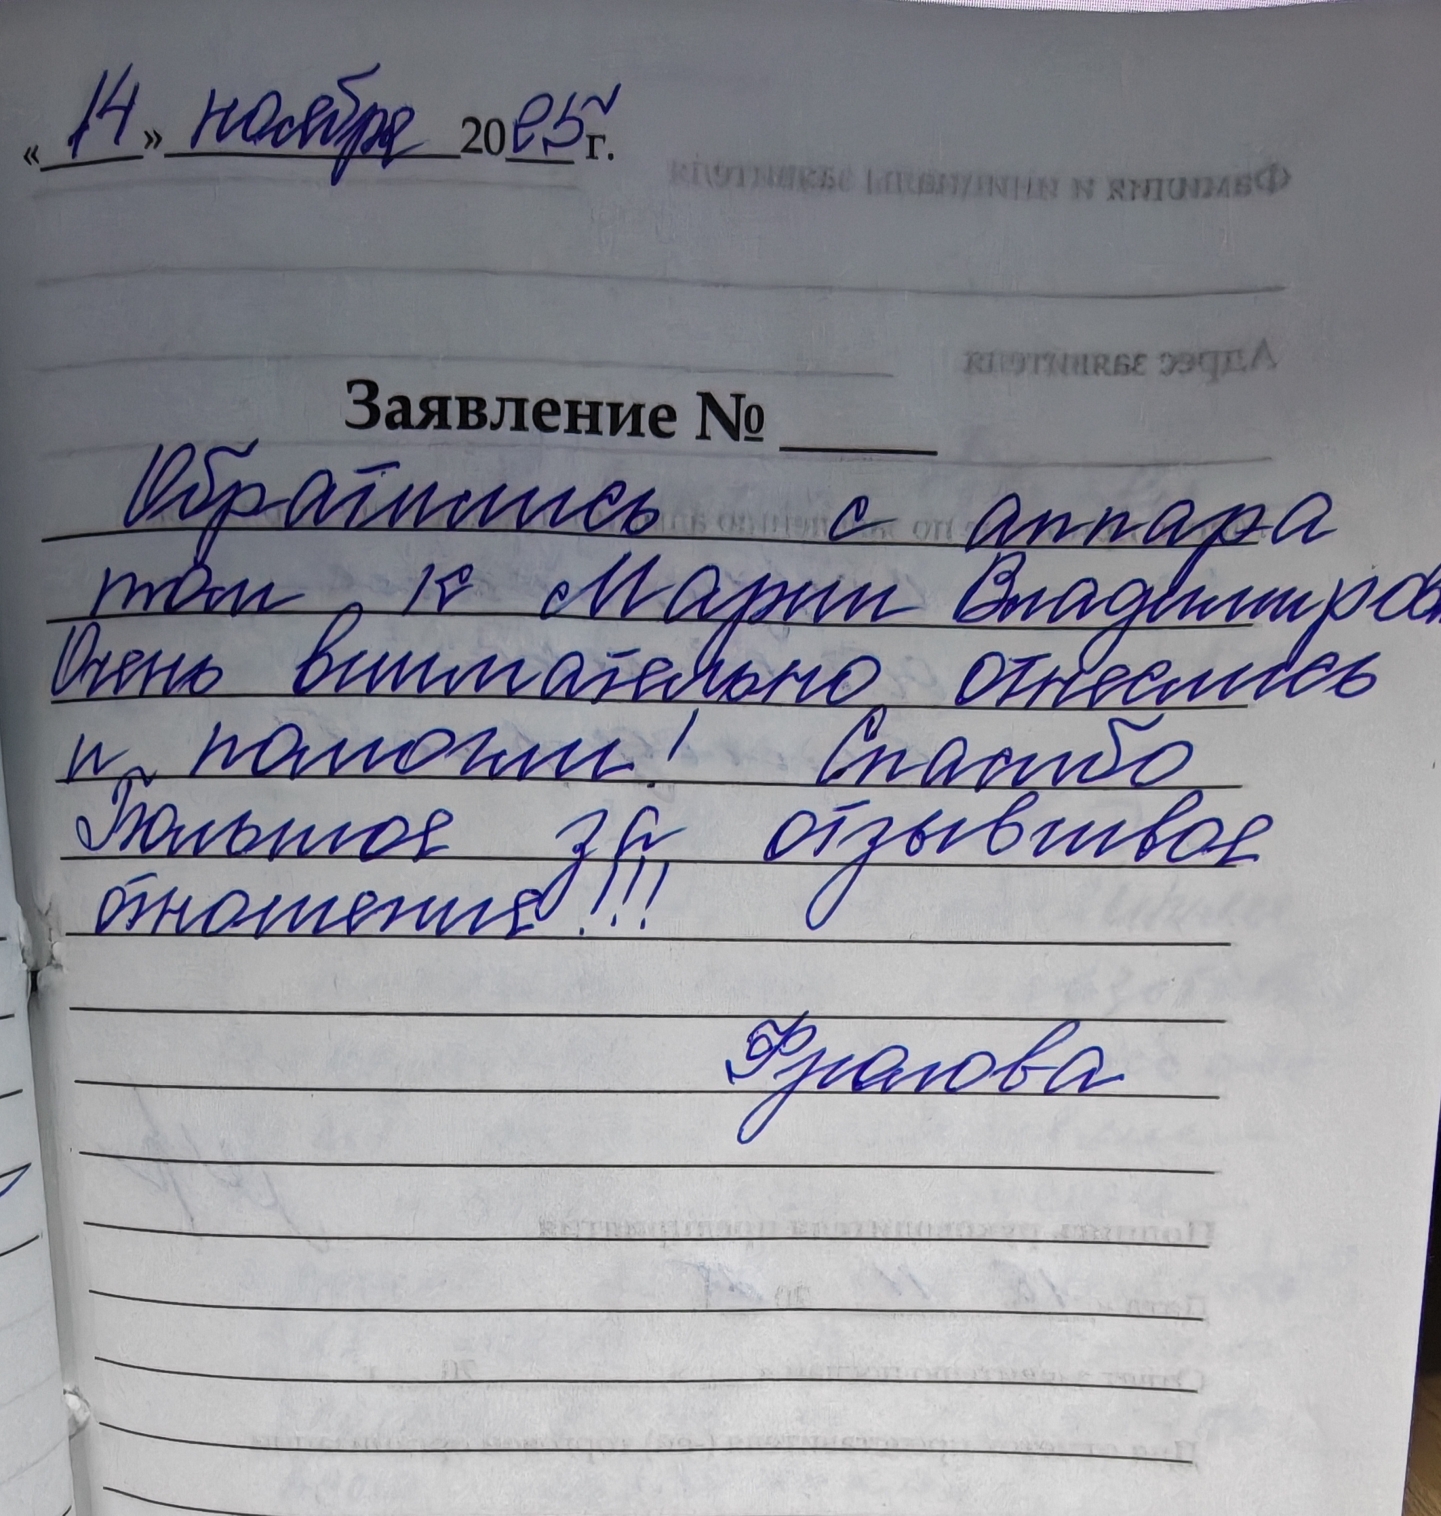 « 14 » ноября 2025 г.
Заявление № ____
Обратились с аппара
том к Марии Владимиров
Очень внимательно отнеслись
и помогли! Спасибо
Большое за отзывшвое
отношение!!!
Фролова